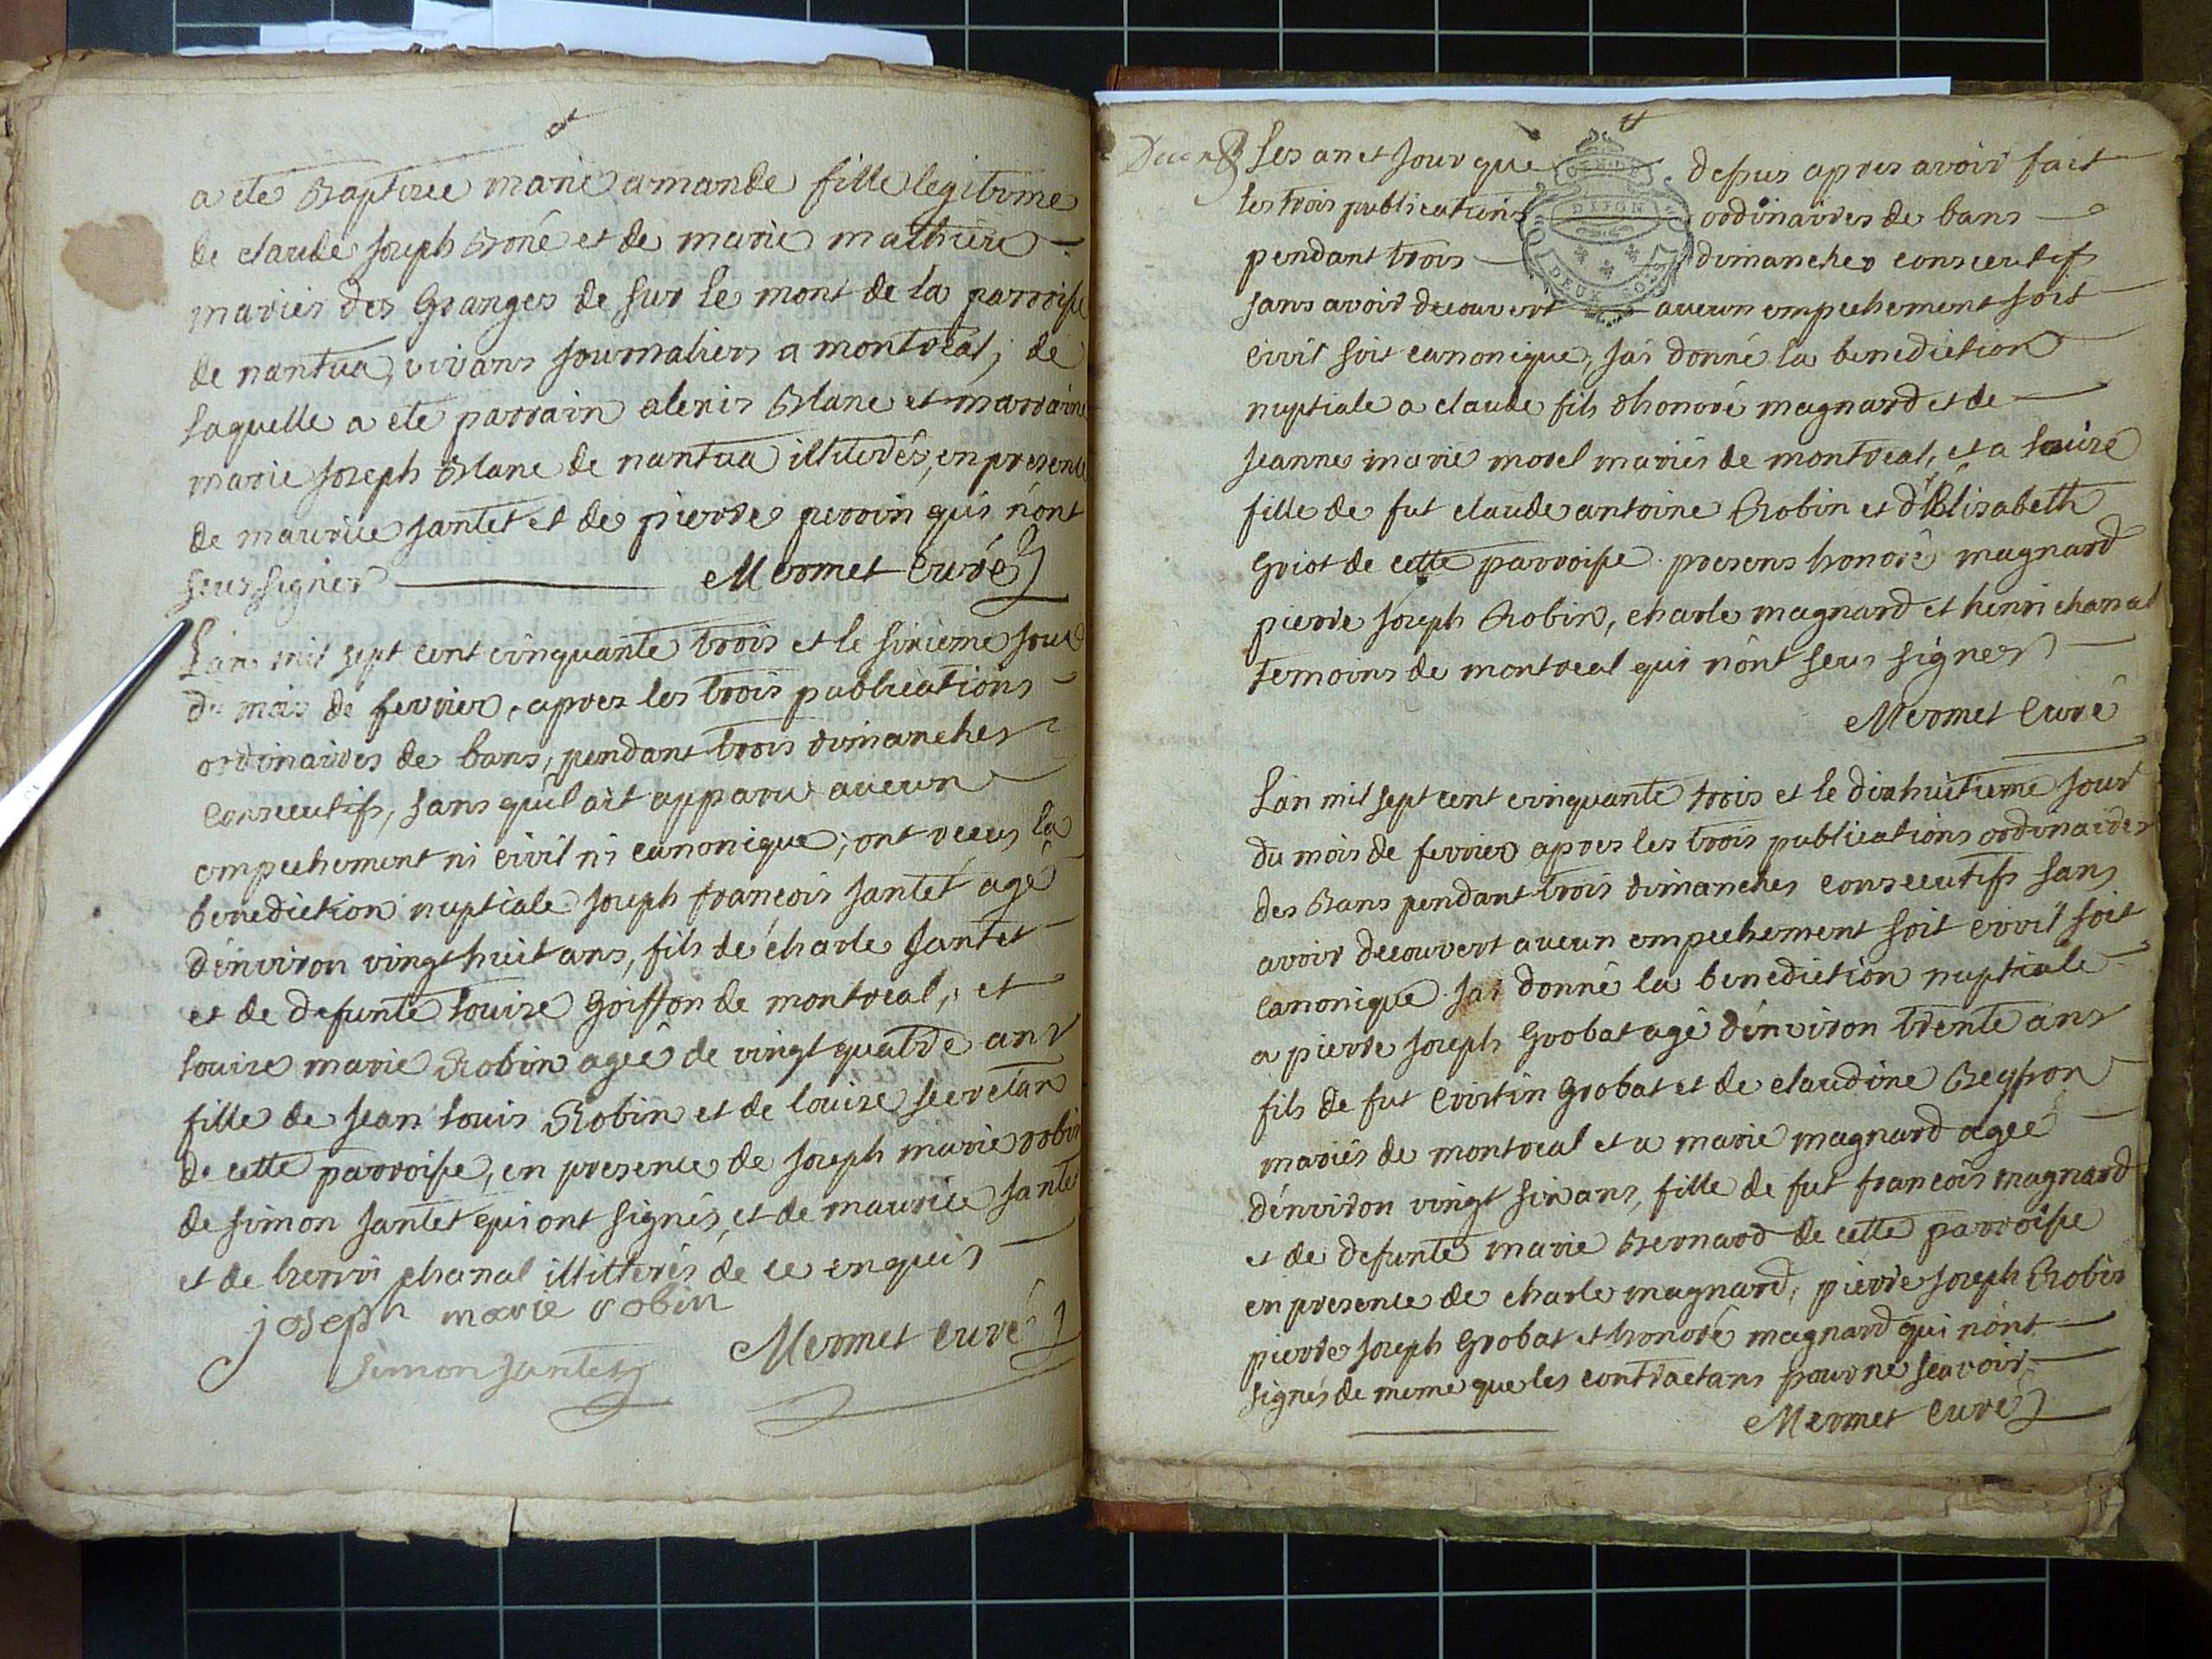 a eté Baptisée marie amande fille legitime
de claude Joseph Boné et de marie mathieu
mariés des Granges de sur le mont de la parroisse
de nantua, vivans Journaliers a montreal, de
laquelle a eté parrain alexis Blanc et marraine
marie Joseph Blanc de nantua illiterés, en presence
de maurice Jantet et de pierre perrin qui n'ont
sçeus signer Mermet Curé
L'an mil sept cent cinquante trois et le sixieme jour
du mois de fevrier, apres les trois publications
ordinaires de bans, pendant trois dimanches
consecutifs, sans qu'il ait apparu aucun
empechement ni civil ni canonique, ont receus la
benediction nuptiale Joseph francois Jantet agé
d'environ vingt huit ans, fils de charle Jantet
et de defunte louise Goiffon de montreal, et
louise marie Robin agée de vingt quatre ans
fille de Jean louis Robin et de louise secretan
de cette parroisse, en presence de Joseph marie robin
de simon Jantet qui ont signés, et de maurice Jantet
et de henri chanal illitterés de ce enquis
joseph marie robin
simon Jantet Mermet Curé
Les an et Jour que depus apres avoir fait
les trois publications ordinaires de bans
pendant trois dimanches consecutifs
sans avoir decouvert aucun empechement soit
civil soit canonique, J'ai donné la benediction
nuptiale a claude fils d'honoré magnard et de
Jeanne marie morel mariés de montreal, et a louise
fille de fut claude antoine Robin et d'Elisabeth
Griot de cette parroisse. presens honoré magnard
pierre Joseph Robin, charle magnard et henri chanal
temoins de montreal qui n'ont sçeus signer
Mermet Curé
DIJON
DEUX SOLS
L'an mil sept cent cinquante trois et le dixhuitieme Jour
du mois de fevrier apres les trois publications ordinaires
des Bans pendant trois dimanches consecutifs sans
avoir decouvert aucun empechement soit civil soit
canonique J'ai donné la benediction nuptiale
a pierre Joseph Grobat agé d'environ trente ans
fils de fut Grobat et de claudine Beysson
mariés de montreal et a marie magnard agée
d'environ vingt six ans, fille de fut francois magnard
et de defunte marie Bernard de cette parroisse
en presence de charle magnard, pierre Joseph Robin
pierre Joseph Grobat et honoré magnard qui n'ont
signés de meme que les contractans pour ne sçavoir
Mermet Curé